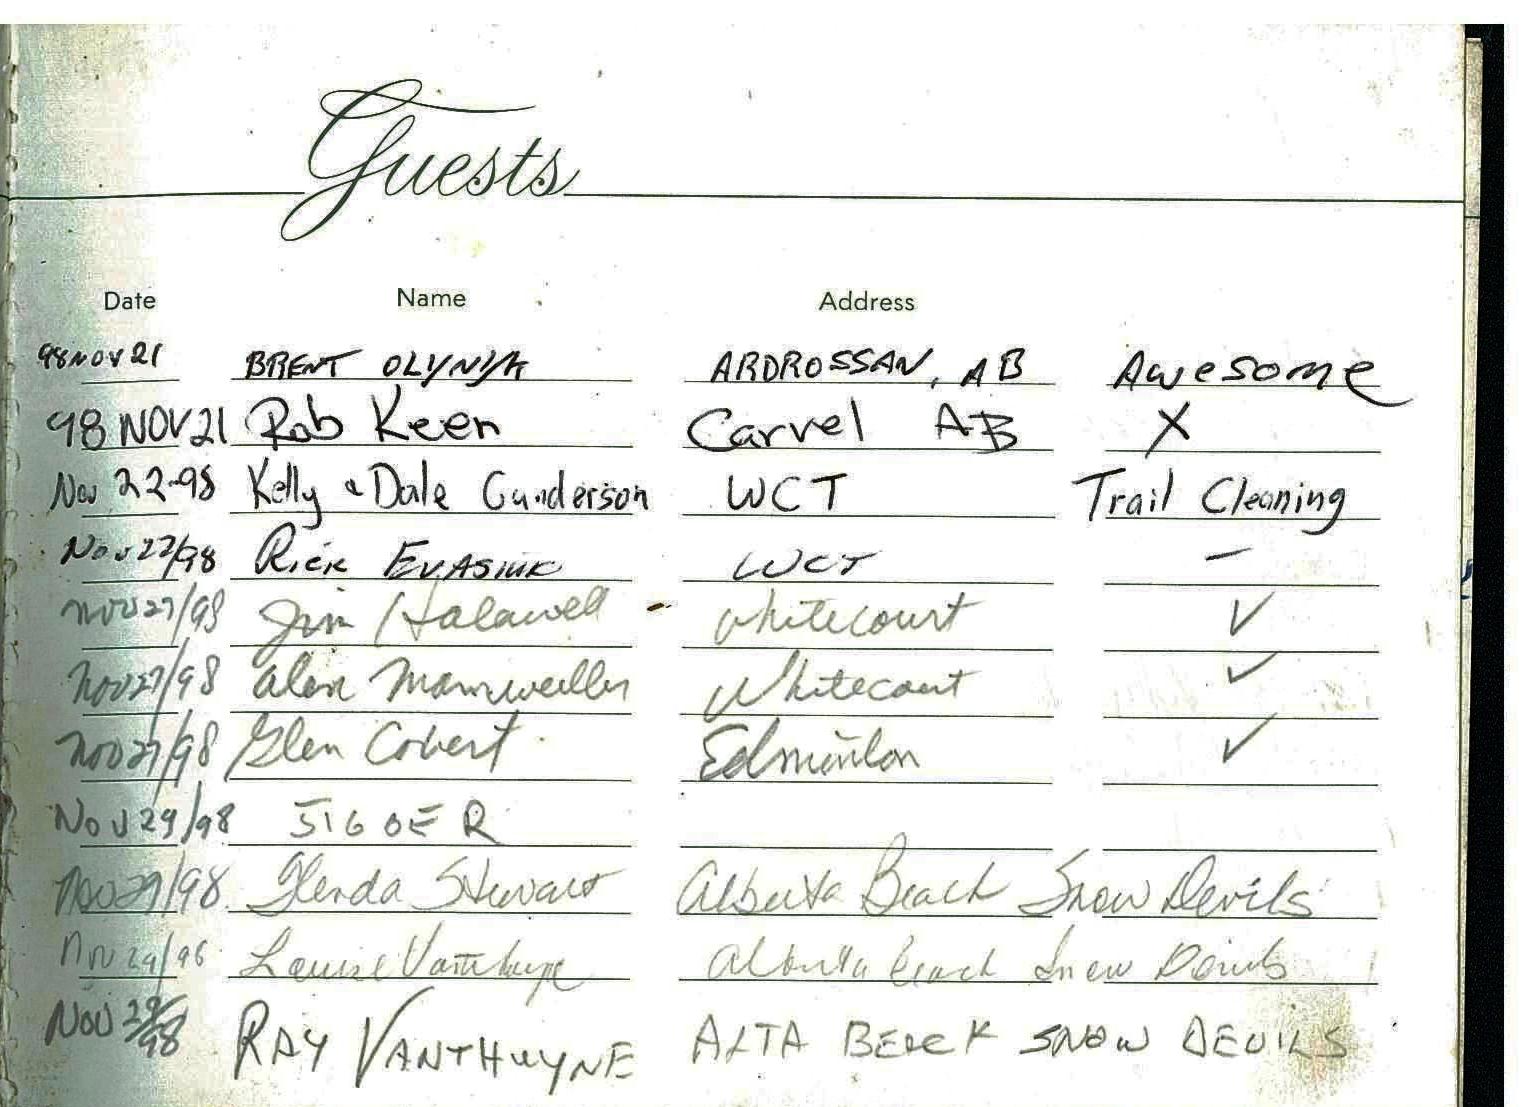 Guests
Date Name Address
98 NOV 21 BRENT OLYNYK ARDROSSAN, AB Awesome
98 NOV 21 Rob Keen Carvel AB X
Nov 22-98 Kelly & Dale Gunderson WCT Trail Cleaning
Nov 22/98 Rick EVASIUK WCT —
Nov 27/98 Jim Halawell Whitecourt ✓
Nov 27/98 Alan Whitecourt ✓
Nov 27/98 Glen Covert Edmonton ✓
Nov 29/98 JIGGER
Nov 29/98 Glenda Stewart Alberta Beach Snow Devils
Nov 29/98 Louise Vanthuyne Alberta Beach Snow Devils
Nov 29/98 RAY VANTHUYNE ALTA BEACH SNOW DEVILS